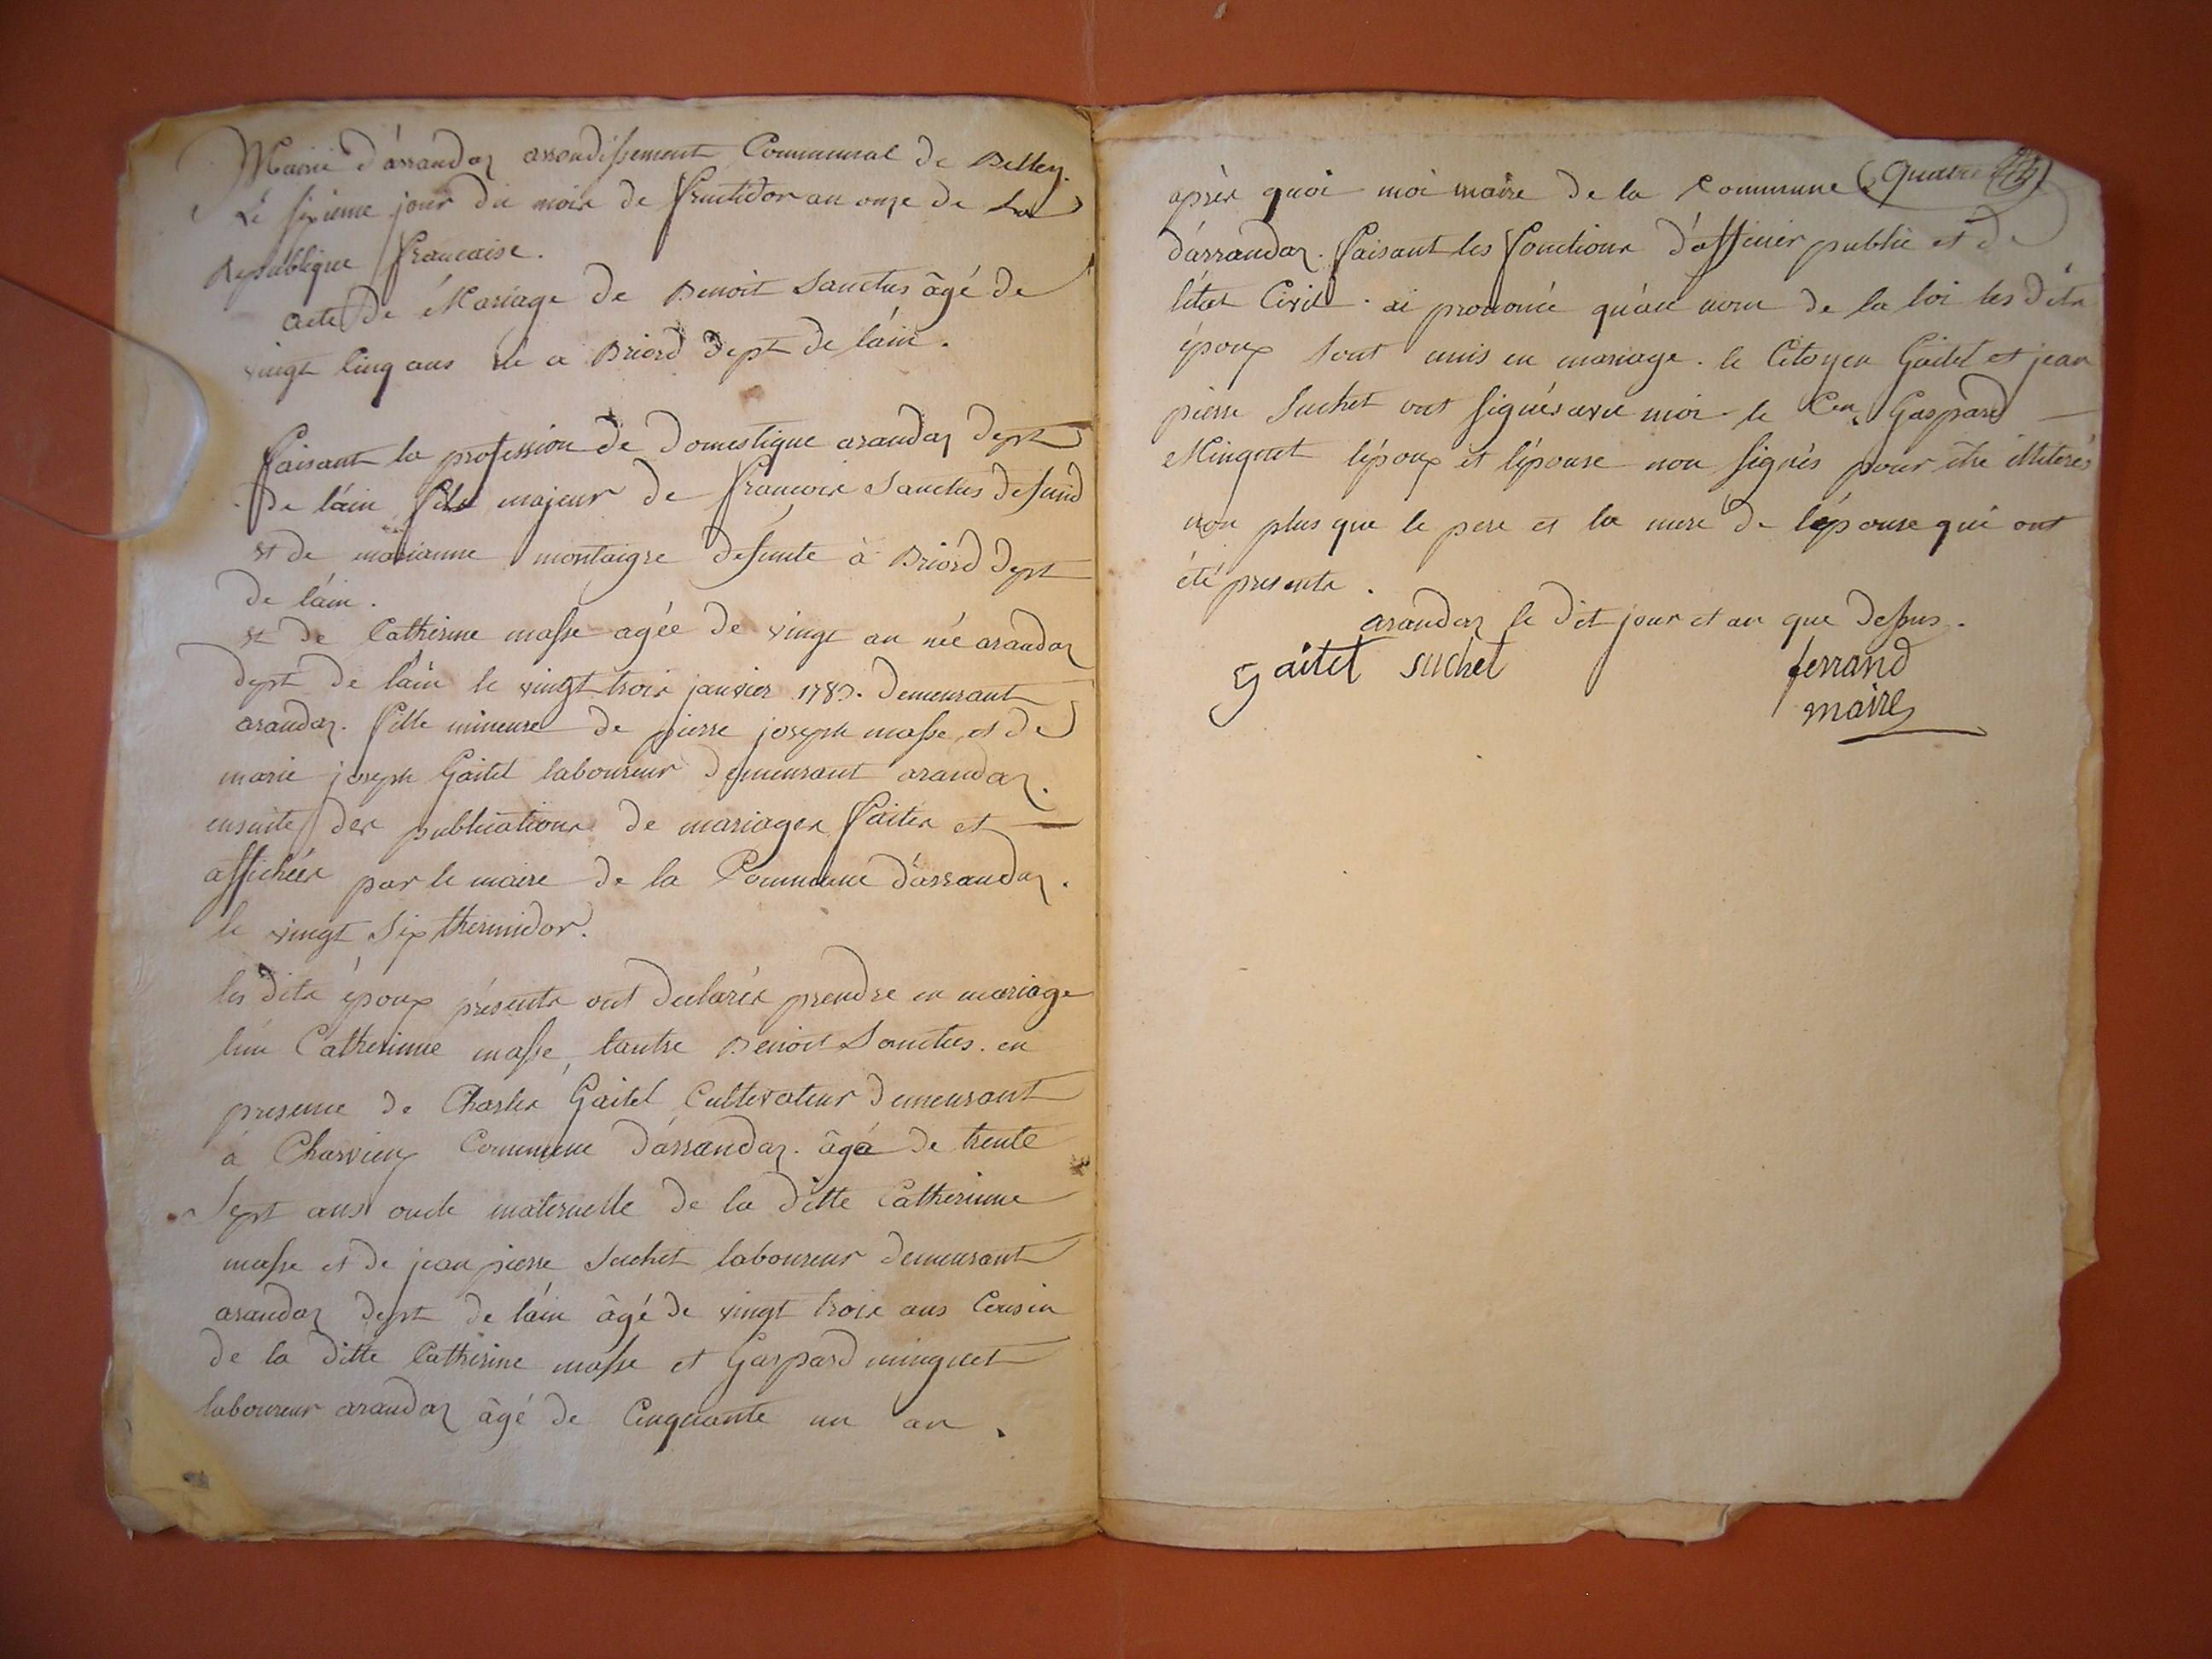 Mairie d'arrandaz arrondissement Communal de Belley.
Le sixieme jour du mois de fructidor an onze de La
Republique francaise.
acte De Mariage de Benoit Sanctus âgé de
vingt cinq ans né a Briord dept de l'ain.
faisant la profession de domestique arandaz dept
De l'ain fils majeur de francois Sanctus defund
et de marianne montaigre defunte à Briord dept
de l'ain.
et de Catherine masse agée de vingt an née arandaz
dept de l'ain le vingt trois janvier 1783. demeurant
arandaz. fille mineure de pierre joseph masse et de
marie joseph Gaitet laboureur demeurant arandaz.
ensuite des publications de mariages faites et
affichées par le maire de la Commune d'arrandaz.
le vingt Six thermidor.
les dits époux présents ont declarés prendre en mariage
l'un Catherinne masse, l'autre Benoit Sanctus. en
presence de Charles Gaitet Cultivateur demeurant
a Charvieux Commune d'arrandaz. âgé de trente
Sept ans oncle maternelle de la ditte Catherinne
masse et de jean pierre Suchet laboureur demeurant
arandaz dept de l'ain âgé de vingt trois ans Cousin
de la ditte Catherine masse et Gaspard minguet
laboureur arandaz âgé de Cinquante un an.
quatre
après quoi moi maire de la Commune
d'arrandaz. faisant les fonctions d'officier public et de
l'état Civil. ai prononcé qu'au nom de la loi les dits
époux sont unis en mariage. le Citoyen Gaitet et jean
pierre Suchet ont signés avec moi le Cen Gaspard
Minguet l'époux et l'épouse non signés pour être illiterés
non plus que le pere et la mere de l'épouse qui ont
été presents.
arandaz le dit jour et an que dessus.
gaitet suchet ferrand
maire